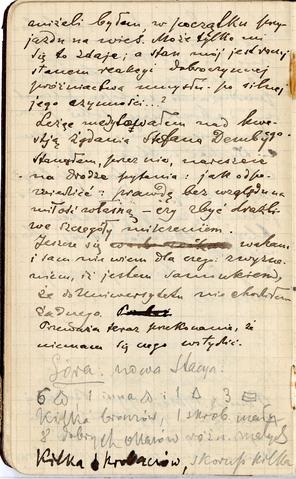 aniżeli byłem w początku przy-
jazdu na wieś. Może tylko mi
się to zdaje, a stan mój jest rodz.
stanem reakcji dobroczynnej
próżniactwa umysłu po silnej
jego czynności...?
Leżąc medytowałem nad kwe-
stją żądania Stefana Dembego
Stanąłem, przez nią, nareszcie
na drodze pytania: jak odpo-
wiedzieć: prawdą bez względu na
miłość własną – czy zbyć drażli-
we szczegóły milczeniem.
Jeszcze się waham,
i sam nie wiem dla czego z wyzna-
niem, iż jestem samoukiem,
że do Uniwersytetu nie chodziłem
żadnego.
Przeważa teraz przekonanie, że
niemam się czego wstydzić.
Góra. nowa Stacya.
6 1 inna 1 3
Kilka bronzów, 1 skrob. mały
8 dobrych okazów różn. małych
Kilka skrobaczów, skorup kilka